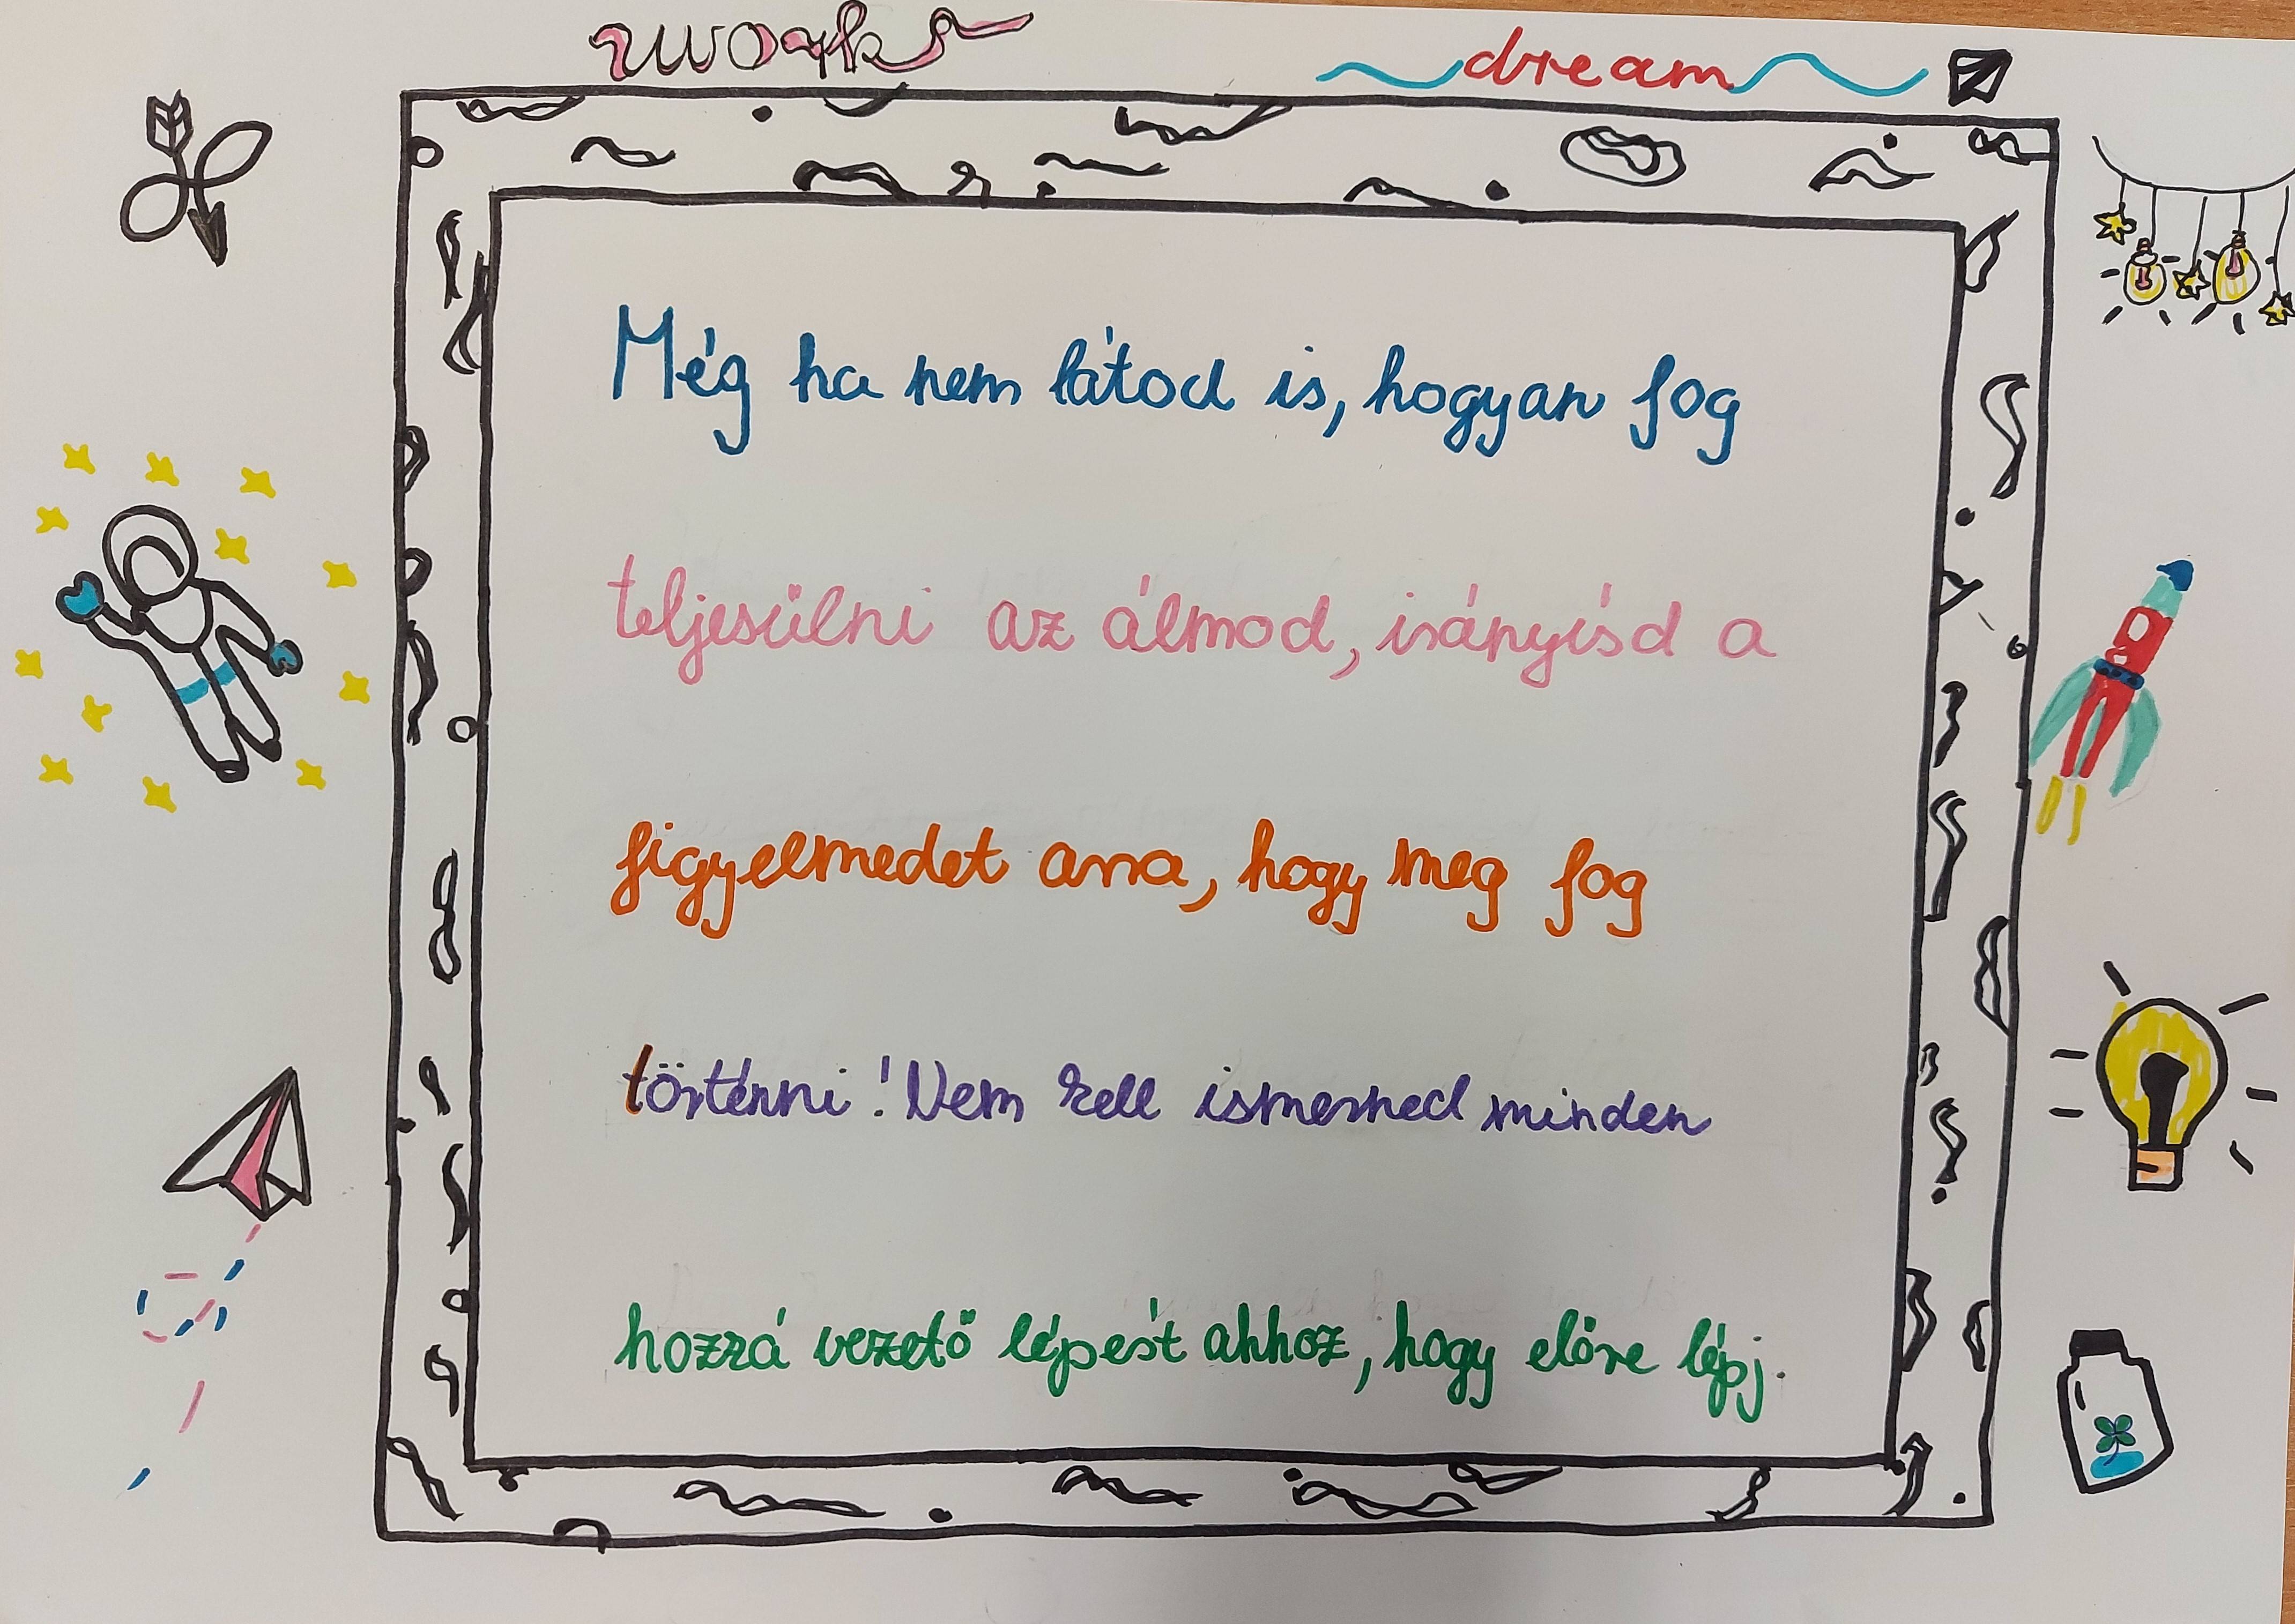 work
dream
Még ha nem látod is, hogyan fog
teljesülni az álmod, irányísd a
figyelmedet arra, hogy meg fog
történni! Nem kell ismerned minden
hozzá vezető lépést ahhoz, hogy előre lépj.